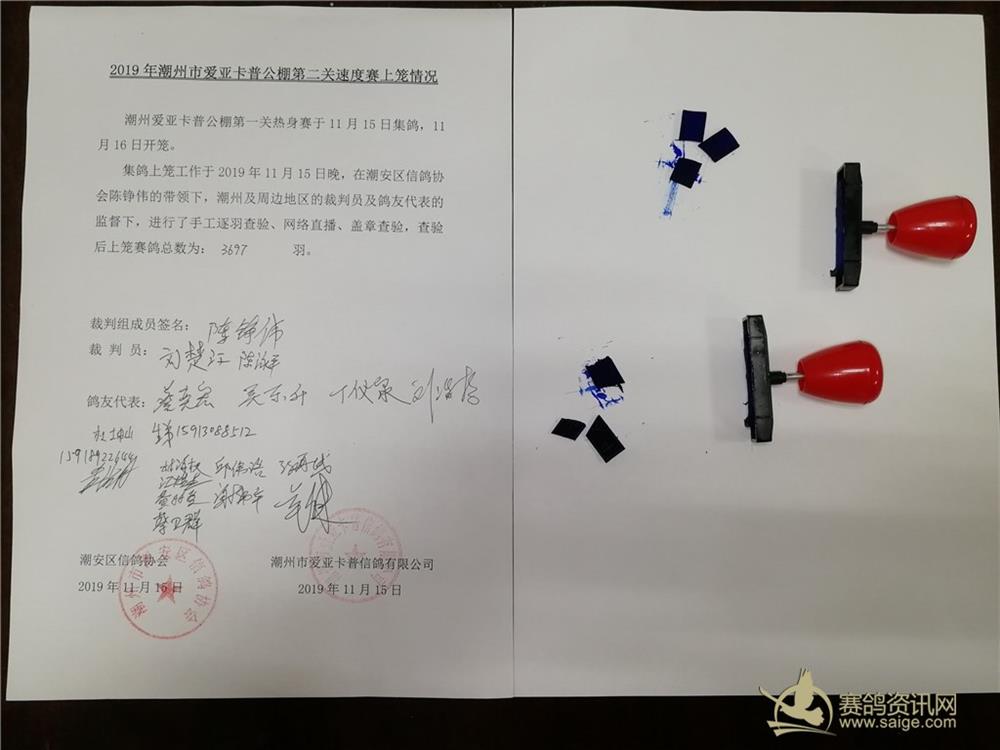 2019 年潮州市爱亚卡普公棚第二关速度赛上笼情况
潮州爱亚卡普公棚第一关热身赛于 11 月 15 日集鸽，11
月 16 日开笼。
集鸽上笼工作于 2019 年 11 月 15 日晚，在潮安区信鸽协
会陈铮伟的带领下，潮州及周边地区的裁判员及鸽友代表的
监督下，进行了手工逐羽查验、网络直播、盖章查验，查验
后上笼赛鸽总数为： 3697 羽。
裁判组成员签名： 陈铮伟
裁 判 员：
鸽友代表：
15913088512
邱伟浩
潮安区信鸽协会 潮州市爱亚卡普信鸽有限公司
2019 年 11 月 15 日 2019 年 11 月 15 日
潮州市潮安区信鸽协会
赛鸽资讯网
www.saige.com